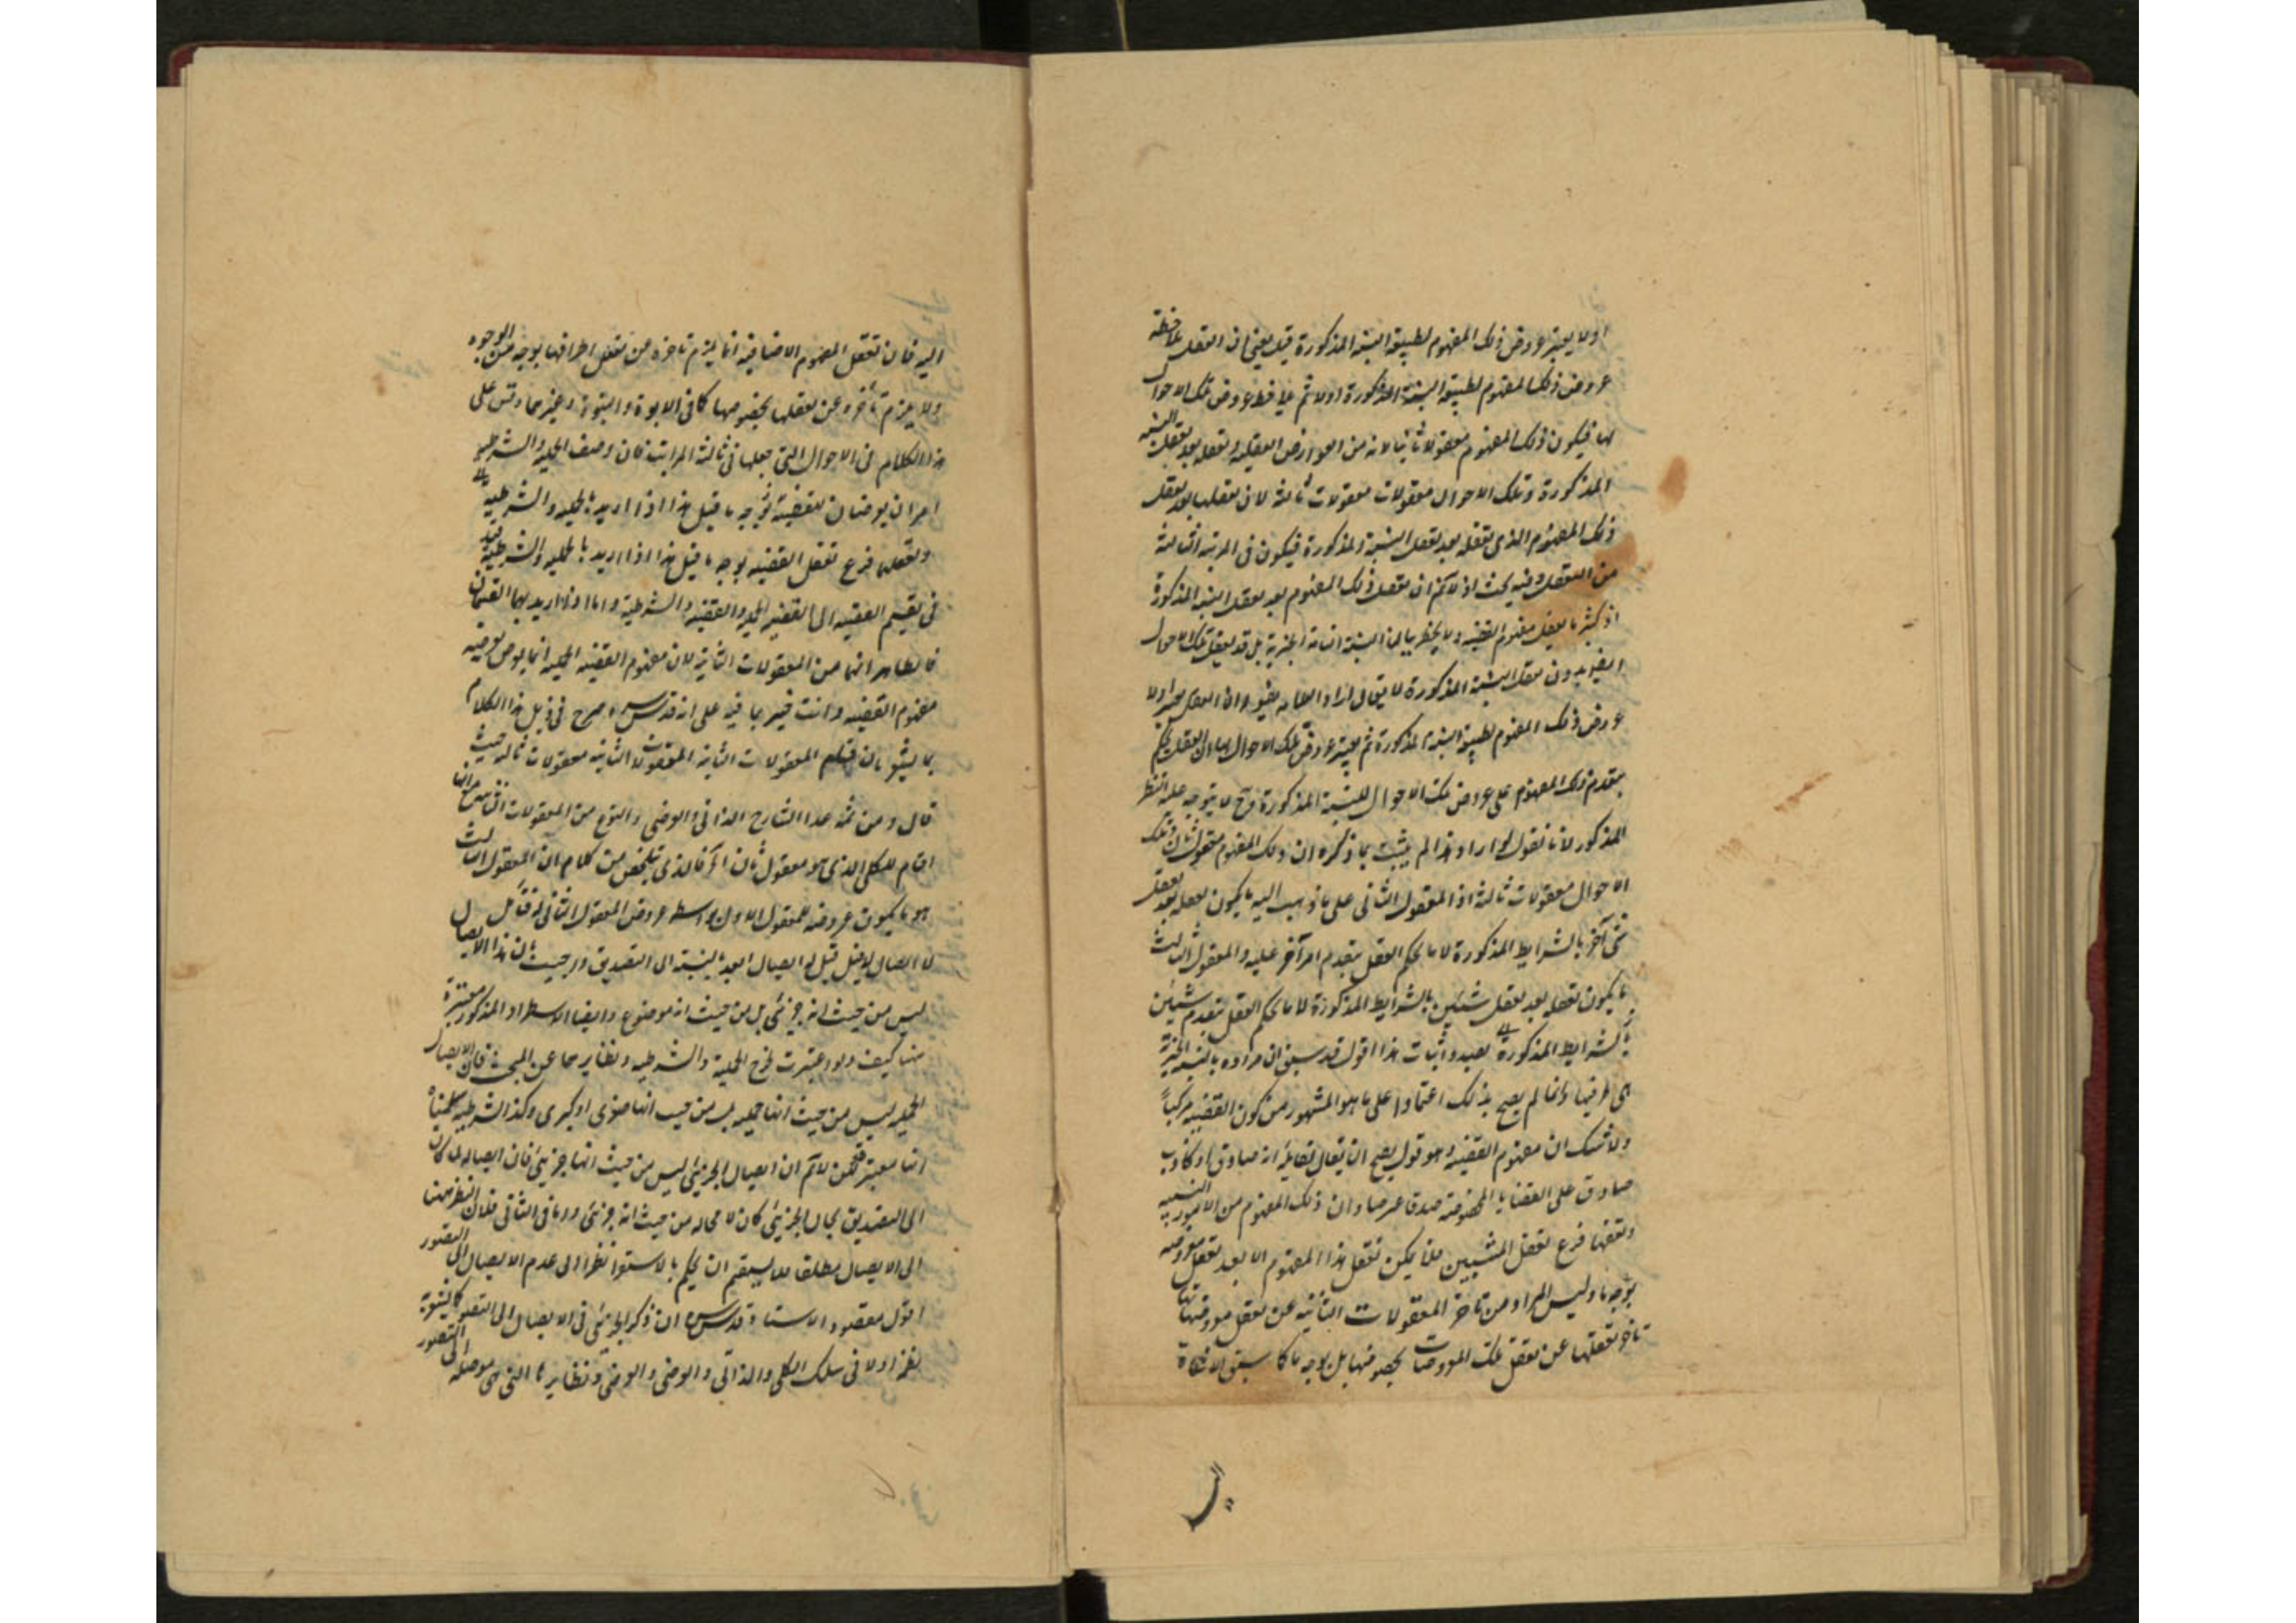 او لا يعتبر عروض ذلك المفهوم لطبيعة النسبة المذكورة قيل يعني ان العقل يلاحظ
عروض ذلك المفهوم لطبيعة النسبة المذكورة اولا ثم يلاحظ عروض تلك الاحوال
لها فيكون ذلك المفهوم معقولا ثانيا لانه من العوارض العقلية وتعقله بعد تعقل النسبة
المذكورة وتلك الاحوال معقولات معقولات ثالثة لان تعقلها بعد تعقل
ذلك المفهوم الذي تعقله بعد تعقل النسبة المذكورة فيكون في المرتبة الثالثة
من التعقل وفيه بحث اذ لا نم ان تعقل ذلك المفهوم بعد تعقل النسبة المذكورة
اذ كثيرا ما يعقل مفهوم القضية ولا يخطر بالبال النسبة التامة الخبرية بل قد يعقل تلك الاحوال
ايضا بدون تعقل النسبة المذكورة لا يقال اراد العلامة بقوله وان العقل يعتبر اولا
عروض ذلك المفهوم لطبيعة النسبة المذكورة ثم يعتبر عروض تلك الاحوال لها ان العقل يحكم
بتقدم ذلك المفهوم على عروض تلك الاحوال للنسبة المذكورة وح لا يتوجه عليه النظر
المذكور لانا نقول لو اراد هذا لم يثبت بما ذكره ان ذلك المفهوم معقول ثان وتلك
الاحوال معقولات ثالثة اذ المعقول الثاني على ما ذهب اليه ما يكون تعقله بعد تعقل
شئ آخر بالشرايط المذكورة لا ما يحكم العقل بتقدم امر آخر عليه والمعقول الثالث
ما يكون تعقله بعد تعقل شيئين بالشرايط المذكورة لا ما يحكم العقل بتقدم شيئين
بالشرايط المذكورة عليه واثبات هذا اقول قد سبق ان مراده بالنسبة الخبرية
هي طرفيها وانما لم يصرح بذلك اعتمادا على ما هو المشهور من كون القضية مركبا
ولا شك ان مفهوم القضية وهو قول يصح ان يقال لقائله انه صادق او كاذب
صادق على القضايا المخصوصة صدقا عرضيا وان ذلك المفهوم من الامور النسبية
وتعقلها فرع تعقل المنتسبين فلا يمكن تعقل هذا المفهوم الا بعد تعقل معروضه
بوجه ما وليس المراد من تاخر المعقولات الثانية عن تعقل معروضاتها
تاخر تعقلها عن تعقل تلك المعروضات بخصوصها بل بوجه ما كما سبق الاشارة
اليه فان تعقل المفهوم الاضافية انما يلزم تاخره من تعقل اطرافها بوجه من الوجوه
ولا يلزم تأخره عن تعقلها بخصوصها كما في الابوة والبنوة وغيرهما وقس على
هذا الكلام في الاحوال التي جعلها في ثالثة المراتب فان وصف الحملية والشرطية
امران يعرضان للقضية بوجه ما قيل هذا اذا اريد بالحملية والشرطية
وتعقلهما فرع تعقل القضية بوجه ما قيل هذا اذا اريد بالحملية والشرطية قيد
في تقسيم القضية الى القضية الحملية والقضية الشرطية واما اذا اريد بهما القسمان
فالظاهر انهما من المعقولات الثانية لان مفهوم القضية الحملية انما يعرض لمعروضه
مفهوم القضية وانت خبير بما فيه على انه قدس سره صرح في ذيل هذا الكلام
بما يشعر بان قسم المعقولات الثانية المعقولات الثانية معقولات ثالثة حيث
قال ومن ثمة عد الشارح الذاتي والعرضي والنوع من المعقولات الثانية مع انها
اقسام للكلي الذي هو معقول ثان آه فالذي تلخص من كلامه ان المعقول الثالث
هو ما يكون عروضه للمعقول الاول بواسطة عروض المعقول الثاني له فتأمل
لا ايصال له قيل قيل له ايصال ابعد بالنسبة الى التصديق وح حيث ان هذا الايصال
ليس من حيث انه جزئي بل من حيث انه موضوع وايضا الاستطراد المذكور معتبرة
هنا كيف ولو اعتبرت لخرج الحملية والشرطية ونظايرهما عن المبحث فان الايصال
الحملية ليس من حيث انها حملية بل من حيث انها صغرى او كبرى وكذا الشرطية سلمنا
انها معتبرة فنحن لا نم ان ايصال الجزئي ليس من حيث انها جزئي فان ايصاله لما كان
الى التصديق بحال الجزئي كان لا محالة من حيث انه جزئي واما في الثاني فلان النظر هنا
الى الايصال مطلقا فلا يستقيم ان يحكم بالاستواء نظرا الى عدم الايصال الى التصور
اقول مقصود الاستاد قدس سره ان ذكر الجزئي في الايصال الى التصور كما يشعر به
نظمه اولا في سلك الكلي والذاتي والعرضي والعرضي ونظايرها التي هي موصلة الى التصور